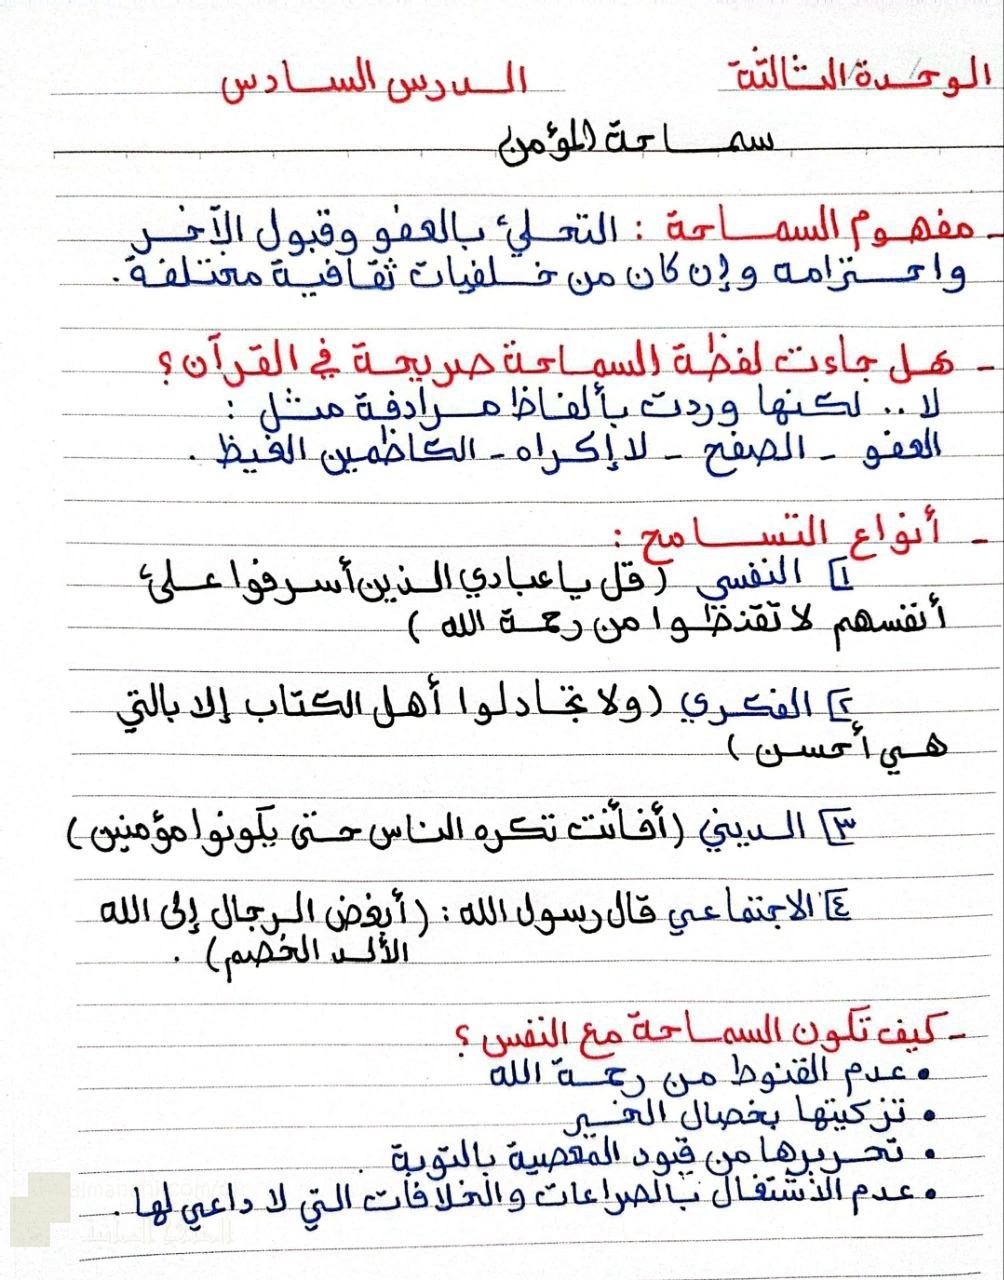 الوحدة الثالثة الدرس السادس
سماحة المؤمن
- مفهوم السماحة : التحلي بالعفو وقبول الآخر
واحترامه وإن كان من خلفيات ثقافية مختلفة .
- هل جاءت لفظة السماحة صريحة في القرآن ؟
لا .. لكنها وردت بألفاظ مرادفة مثل :
العفو - الصفح - لا إكراه - الكاظمين الغيظ .
- أنواع التسامح :
١] النفسي (قل يا عبادي الذين أسرفوا على
أنفسهم لا تقنطوا من رحمة الله )
٢] الفكري (ولا تجادلوا أهل الكتاب إلا بالتي
هي أحسن )
٣] الديني (أفأنت تكره الناس حتى يكونوا مؤمنين )
٤] الاجتماعي قال رسول الله : ( أبغض الرجال إلى الله
الألد الخصم) .
- كيف تكون السماحة مع النفس ؟
• عدم القنوط من رحمة الله
• تزكيتها بخصال الخير
• تحريرها من قيود المعصية بالتوبة .
• عدم الاشتغال بالصراعات والخلافات التي لا داعي لها .